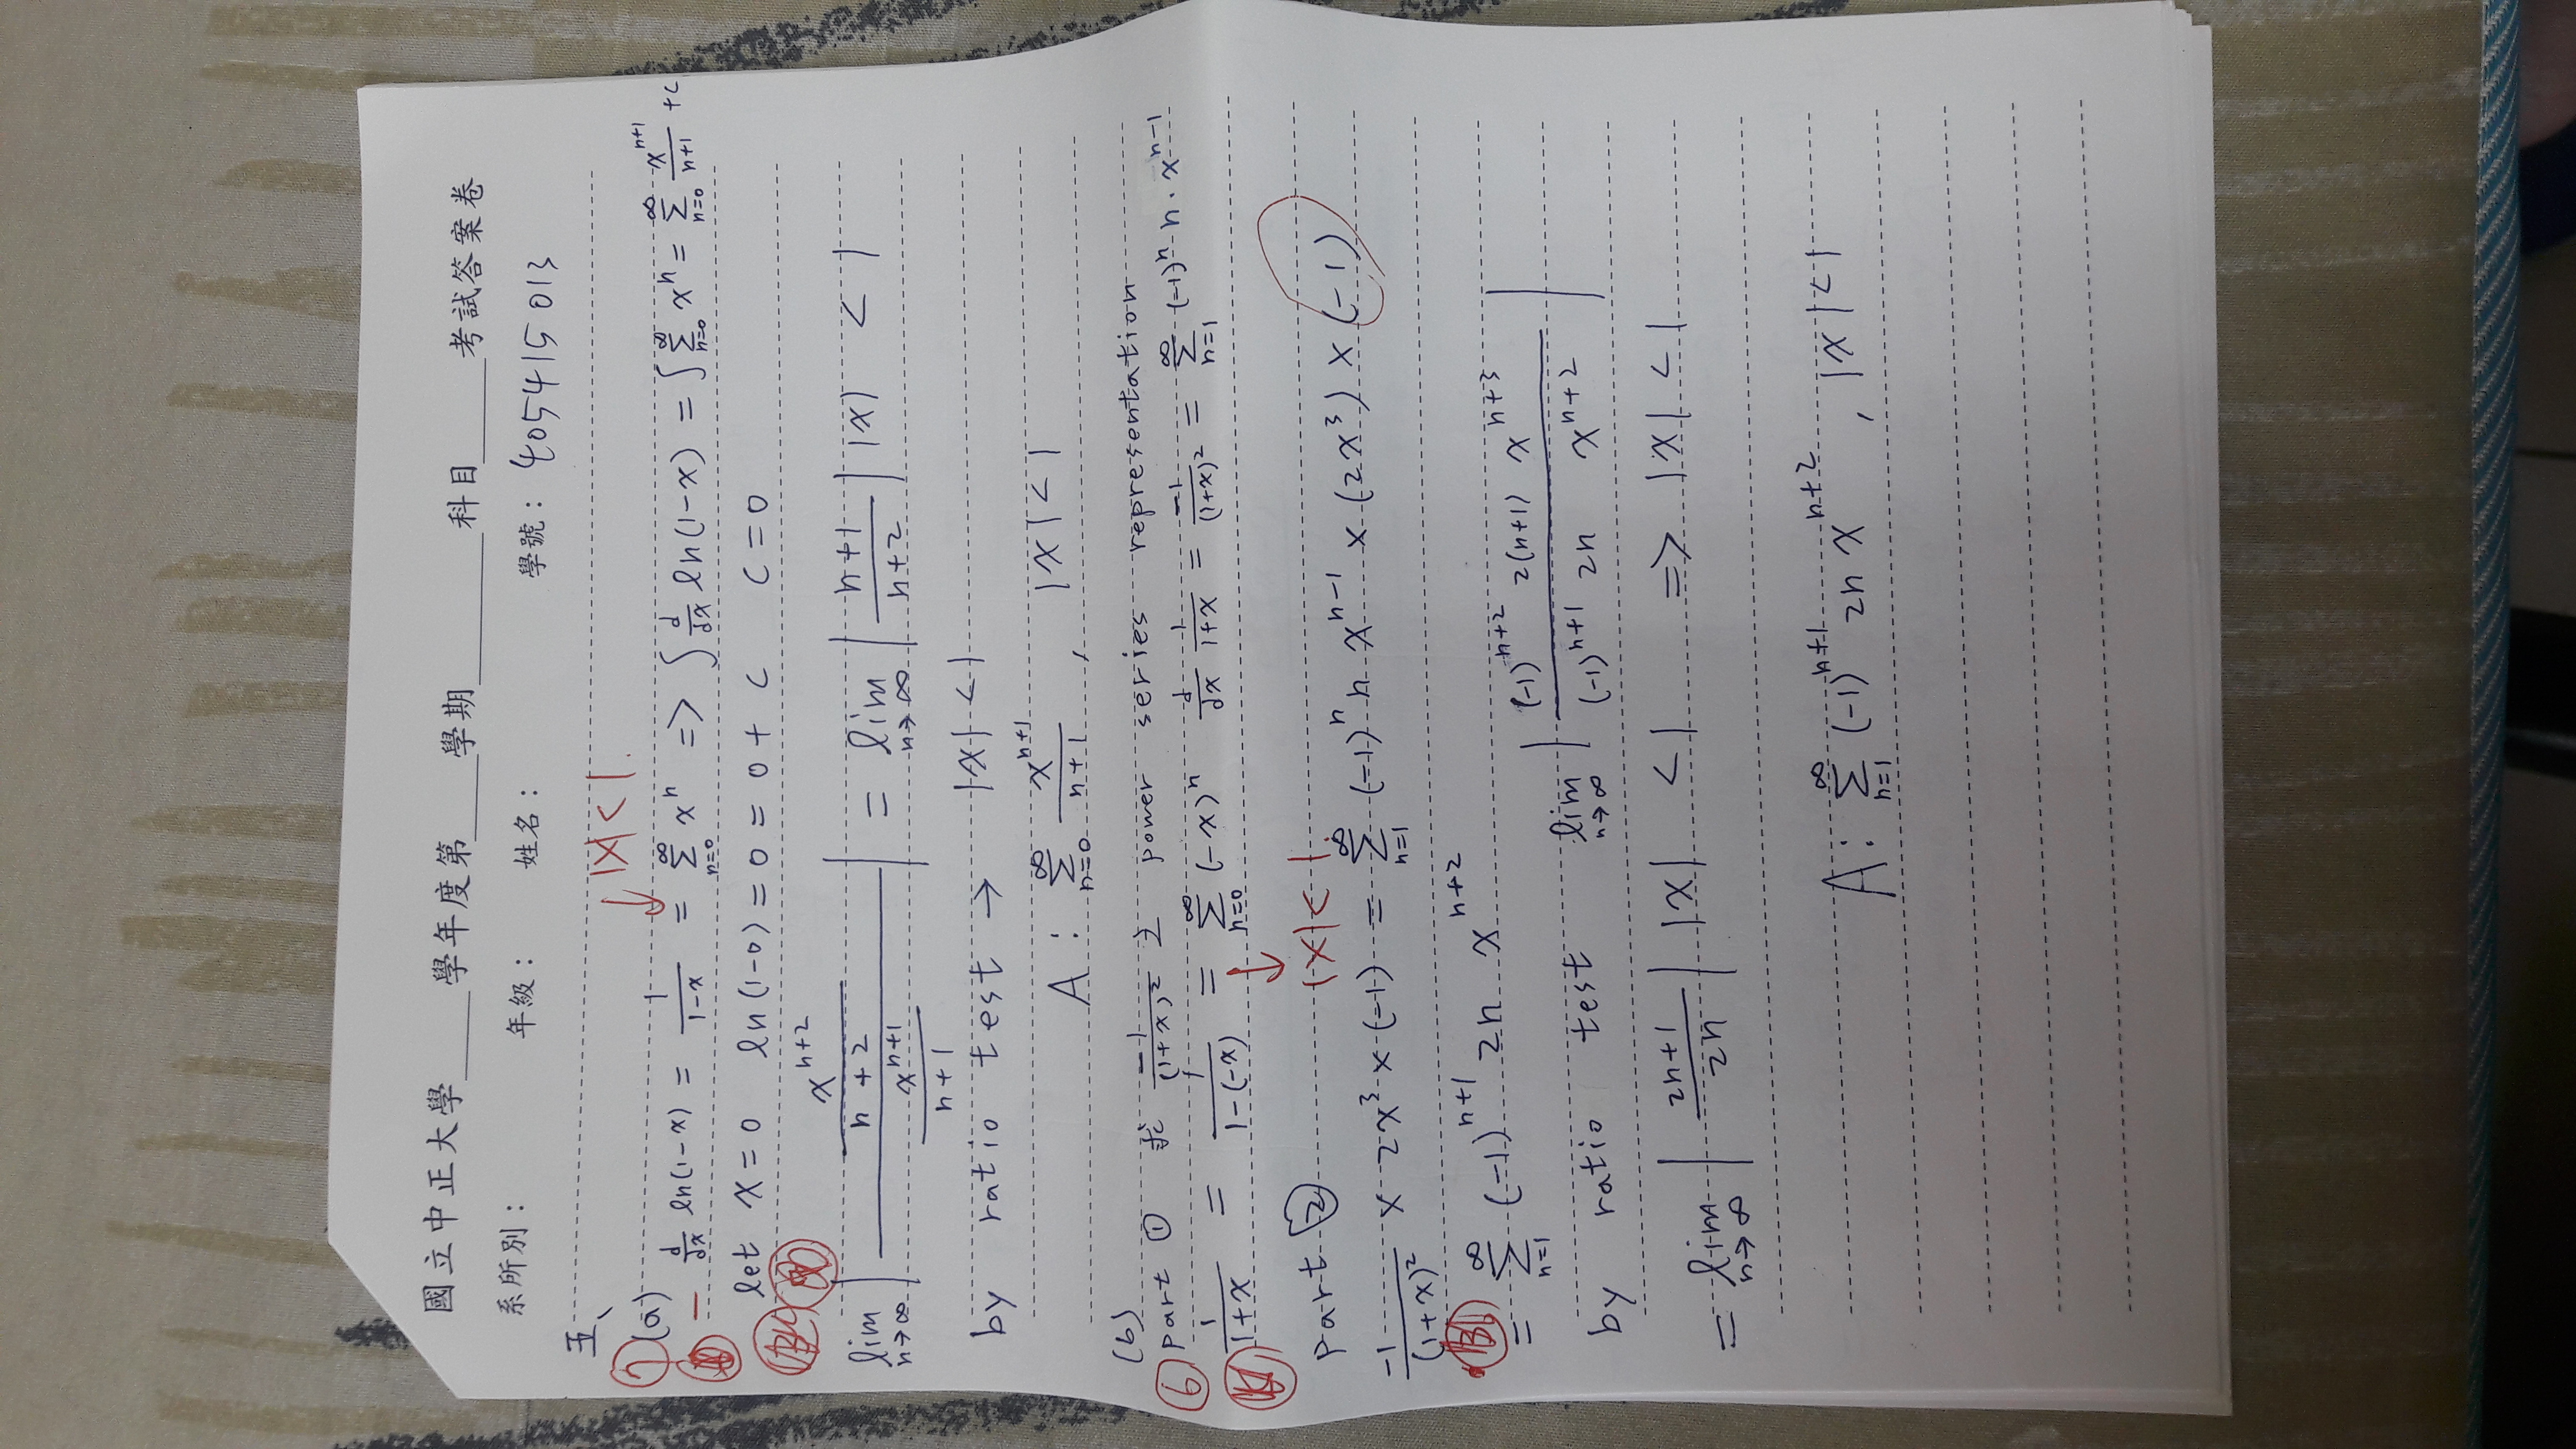 國立中正大學_____學年度第_____學期_________科目______考試答案卷
系所別： 年級： 姓名： 學號： 405415013
五、
↓ |x| < 1.
⑦ (a)
− d/dx ln(1-x) = 1/(1-x) = ∑_{n=0}^{∞} x^n => ∫ d/dx ln(1-x) = ∫ ∑_{n=0}^{∞} x^n = ∑_{n=0}^{∞} x^{n+1}/(n+1) + c
let x = 0 ln(1-0) = 0 = 0 + c c = 0
lim_{n→∞} | (x^{n+2}/(n+2)) / (x^{n+1}/(n+1)) | = lim_{n→∞} | (n+1)/(n+2) | |x| < 1
by ratio test → |x| < 1
A : ∑_{n=0}^{∞} x^{n+1}/(n+1) , |x| < 1
(b)
⑥ part ① 求 -1/(1+x)^2 之 power series representation
1/(1+x) = 1/(1-(-x)) = ∑_{n=0}^{∞} (-x)^n d/dx 1/(1+x) = -1/(1+x)^2 = ∑_{n=1}^{∞} (-1)^n n · x^{n-1}
↓ |x| < 1.
part ②
-1/(1+x)^2 × 2x^3 × (-1) = ∑_{n=1}^{∞} (-1)^n n x^{n-1} × (2x^3) × (-1)
= ∑_{n=1}^{∞} (-1)^{n+1} 2n x^{n+2}
by ratio test lim_{n→∞} | ((-1)^{n+2} 2(n+1) x^{n+3}) / ((-1)^{n+1} 2n x^{n+2}) |
= lim_{n→∞} | (2n+1)/(2n) | |x| < 1 => |x| < 1
A : ∑_{n=1}^{∞} (-1)^{n+1} 2n x^{n+2} , |x| < 1